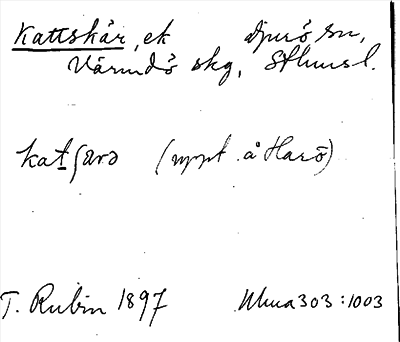 Kattskär, ek Djurö sn,
Värmdö skg, Sthmsl.
kat̲ʃærə (uppt. å Harö)
T. Rubin 1897 Uma 303:1003